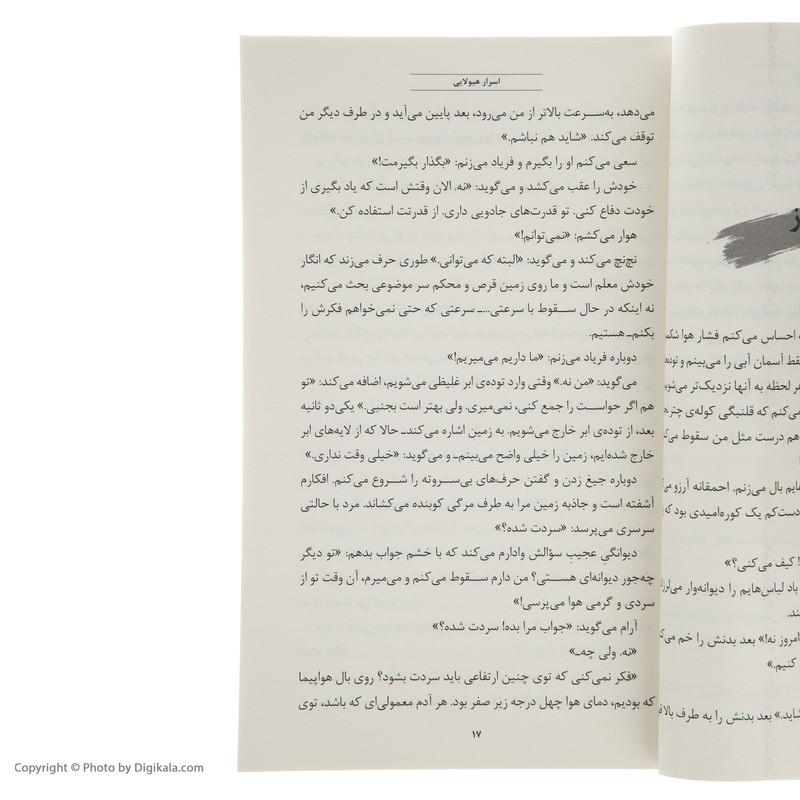 اسرار هیولایی
می‌دهد، به‌سرعت بالاتر از من می‌رود، بعد پایین می‌آید و در طرف دیگر من
توقف می‌کند. «شاید هم نباشم.»
سعی می‌کنم او را بگیرم و فریاد می‌زنم: «بگذار بگیرمت!»
خودش را عقب می‌کشد و می‌گوید: «نه. الان وقتش است که یاد بگیری از
خودت دفاع کنی. تو قدرت‌های جادویی داری. از قدرتت استفاده کن.»
هوار می‌کشم: «نمی‌توانم!»
نچ‌نچ می‌کند و می‌گوید: «البته که می‌توانی.» طوری حرف می‌زند که انگار
خودش معلم است و ما روی زمین قرص و محکم سر موضوعی بحث می‌کنیم،
نه اینکه در حال سقوط با سرعتی...ـ سرعتی که حتی نمی‌خواهم فکرش را
بکنم‌ـ هستیم.
دوباره فریاد می‌زنم: «ما داریم می‌میریم!»
می‌گوید: «من نه.» وقتی وارد توده‌ی ابر غلیظی می‌شویم، اضافه می‌کند: «تو
هم اگر حواست را جمع کنی، نمی‌میری. ولی بهتر است بجنبی.» یکی‌دو ثانیه
بعد، از توده‌ی ابر خارج می‌شویم. به زمین اشاره می‌کند‌ـ حالا که از لایه‌های ابر
خارج شده‌ایم، زمین را خیلی واضح می‌بینم‌ـ و می‌گوید: «خیلی وقت نداری.»
دوباره جیغ زدن و گفتن حرف‌های بی‌سروته را شروع می‌کنم. افکارم
آشفته است و جاذبه زمین مرا به طرف مرگی کوبنده می‌کشاند. مرد با حالتی
سرسری می‌پرسد: «سردت شده؟»
دیوانگیِ عجیبِ سؤالش وادارم می‌کند که با خشم جواب بدهم: «تو دیگر
چه‌جور دیوانه‌ای هستی؟ من دارم سقوط می‌کنم و می‌میرم، آن وقت تو از
سردی و گرمی هوا می‌پرسی!»
آرام می‌گوید: «جواب مرا بده! سردت شده؟»
«نه. ولی چه‌ـ»
«فکر نمی‌کنی که توی چنین ارتفاعی باید سردت بشود؟ روی بال هواپیما
که بودیم، دمای هوا چهل درجه زیر صفر بود. هر آدم معمولی‌ای که باشد، توی
۱۷
احساس می‌کنم فشار هوا
آسمان آبی را می‌بینم و
هر لحظه به آنها نزدیک‌تر
می‌کنم که قلنبگی کوله‌ی
هم درست مثل من سقوط
بال می‌زنم. احمقانه آرزو
دست‌کم یک کوره‌امیدی بود که
کیف می‌کنی؟»
باد لباس‌هایم را دیوانه‌وار
امروز نه!» بعد بدنش را خم
کنیم.»
شاید.» بعد بدنش را به طرف
Copyright © Photo by Digikala.com